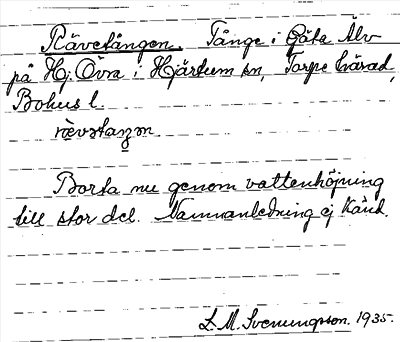 Rävetången. Tånge i Göta Älv
på Hj. Övra i Hjärtum sn, Torpe härad,
Bohus l.
rèvətaŋən
Borta nu genom vattenhöjning
till stor del. Namnanledning ej känd.
L. M. Svenungsson. 1935.